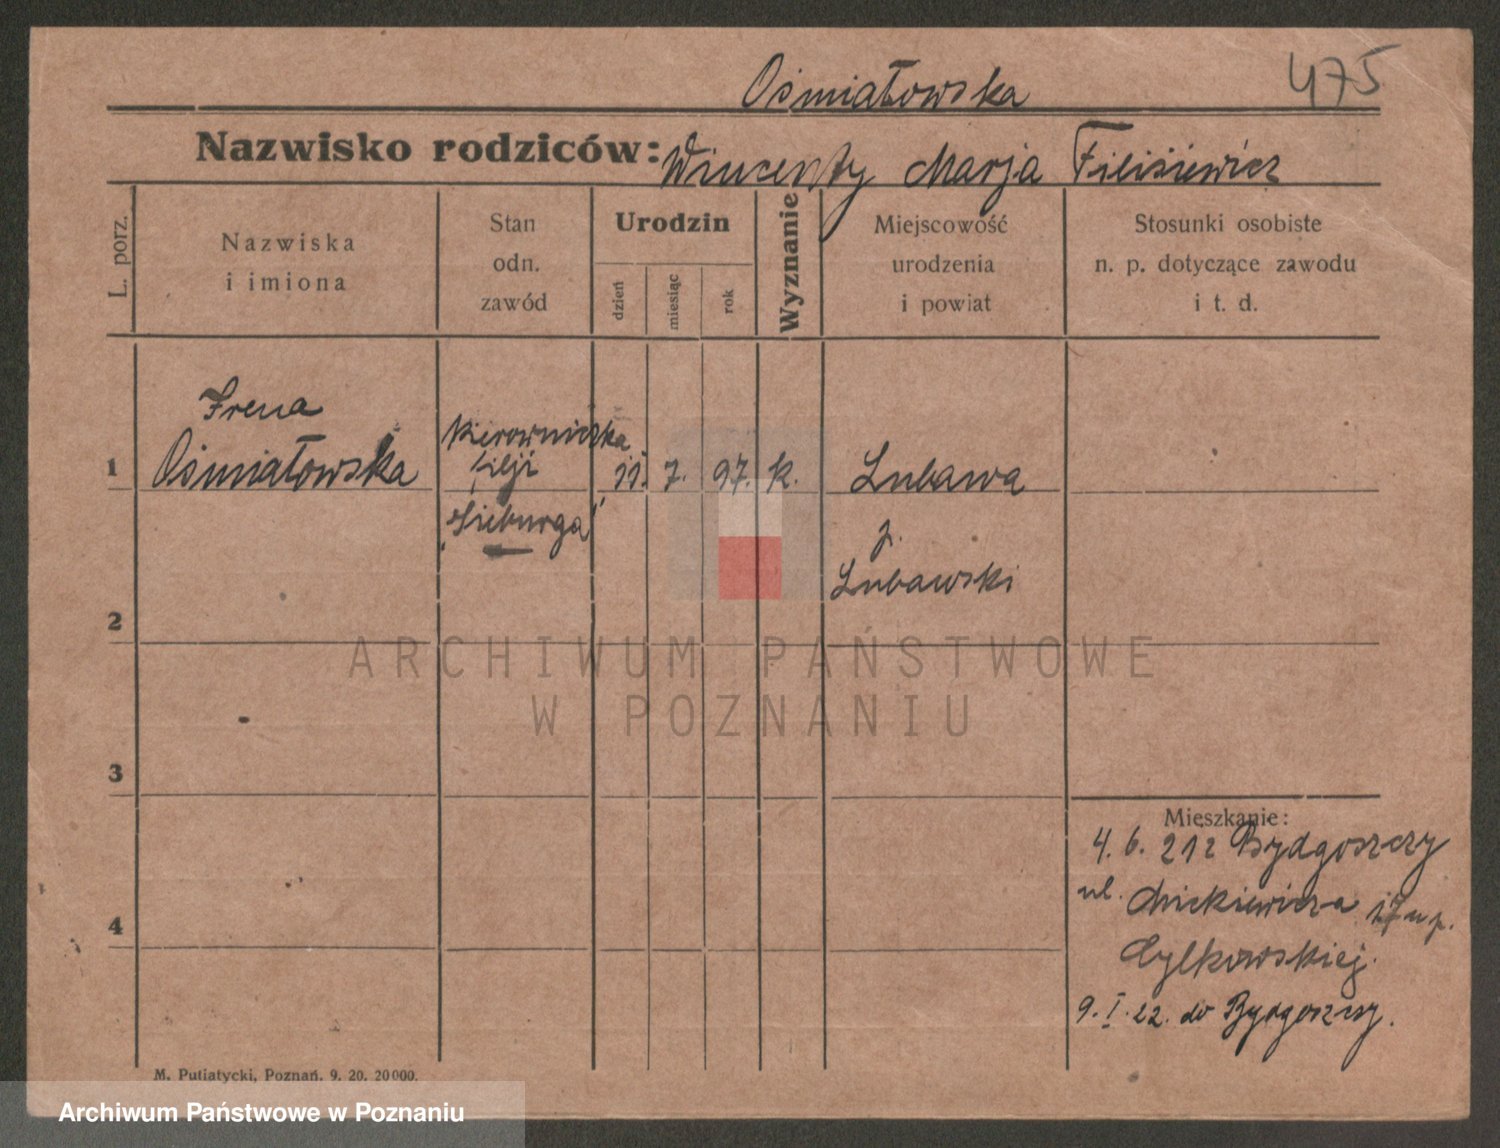 475
Ośmiałowska
Nazwisko rodziców: Wincenty Marja Filisiewicz
L. porz.
Nazwiska
i imiona
Stan
odn.
zawód
Urodzin
dzień
miesiąc
rok
Wyznanie
Miejscowość
urodzenia
i powiat
Stosunki osobiste
n. p. dotyczące zawodu
i t. d.
Irena
1 Ośmiałowska
Kierowniczka
filji
"Sieburga"
11. 7. 97. k.
Lubawa
p.
Lubawski
2
3
4
ARCHIWUM PAŃSTWOWE
W POZNANIU
Mieszkanie:
4. 6. 21 z Bydgoszczy
ul. Mickiewicza 17 u p.
Cylkowskiej.
9. I. 22. do Bydgoszczy.
M. Putiatycki, Poznań. 9. 20. 20000.
Archiwum Państwowe w Poznaniu